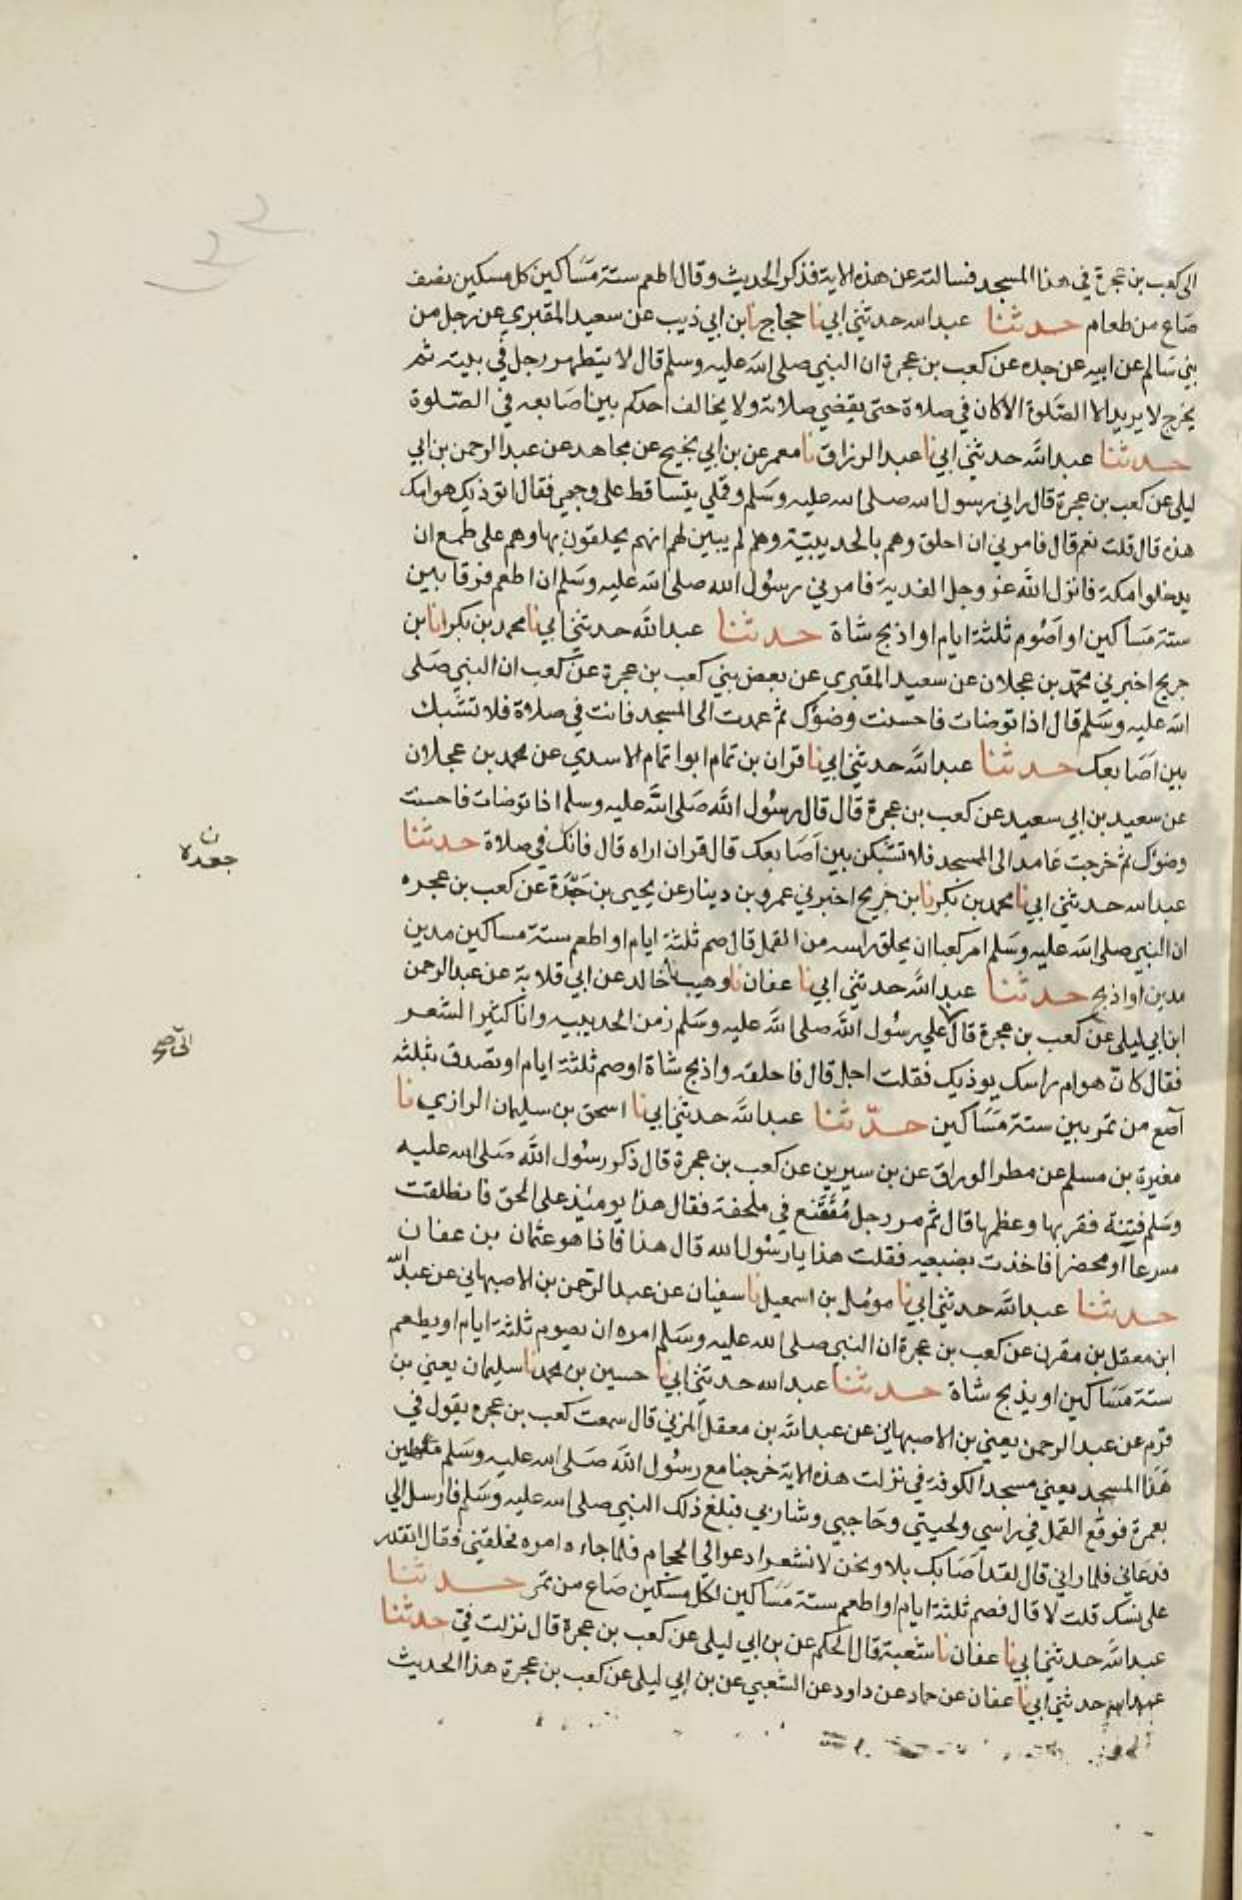 الى كعب بن عجرة في هذا المسجد فسالته عن هذه الاية فذكر الحديث وقال اطعم ستة مساكين كل مسكين نصف
صاع من طعام حدثنا عبد الله حدثني ابي نا حجاج نا بن ابي ذيب عن سعيد المقبري عن رجل من
بني سالم عن ابيه عن جده عن كعب بن عجرة ان النبي صلى الله عليه وسلم قال لا يتطهر رجل في بيته ثم
يخرج لا يريد الا الصلوة الا كان في صلاة حتى يقضي صلاته ولا يخالف احدكم بين اصابعه في الصلوة
حدثنا عبد الله حدثني ابي نا عبد الرزاق نا معمر عن بن ابي نجيح عن مجاهد عن عبد الرحمن بن ابي
ليلى عن كعب بن عجرة قال راني رسول الله صلى الله عليه وسلم وقملي يتساقط على وجهي فقال اتوذيك هوامك
هذه قال قلت نعم قال فامرني ان احلق وهم بالحديبية وهم لم يبين لهم انهم يحلقون بها وهم على طمع ان
يدخلوا مكة فانزل الله عز وجل الفدية فامرني رسول الله صلى الله عليه وسلم ان اطعم فرقا بين
ستة مساكين او اصوم ثلثة ايام او اذبح شاة حدثنا عبد الله حدثني ابي نا محمد بن بكر انا بن
جريج اخبرني محمد بن عجلان عن سعيد المقبري عن بعض بني كعب بن عجرة عن كعب ان النبي صلى
الله عليه وسلم قال اذا توضات فاحسنت وضوك ثم عمدت الى المسجد فانت في صلاة فلا تشبك
بين اصابعك حدثنا عبد الله حدثني ابي نا قران بن تمام ابوا تمام الاسدي عن محمد بن عجلان
عن سعيد بن ابي سعيد عن كعب بن عجرة قال قال رسول الله صلى الله عليه وسلم اذا توضات فاحسنت
وضوك ثم خرجت عامدا الى المسجد فلا تشبكن بين اصابعك قال قران اراه قال فانك في صلاة حدثنا
ن
جعدة
عبد الله حدثني ابي نا محمد بن بكر نا بن جريج اخبرني عمرو بن دينار عن يحيى بن جعدة عن كعب بن عجره
ان النبي صلى الله عليه وسلم امر كعبا ان يحلق راسه من القمل قال صم ثلثة ايام او اطعم ستة مساكين مدين
مدين او اذبح حدثنا عبد الله حدثني ابي نا عفان نا وهيب نا خالد عن ابي قلابة عن عبد الرحمن
ابن ابي ليلى عن كعب بن عجرة قال علي رسول الله صلى الله عليه وسلم زمن الحديبيه وانا كثير الشعر
اتى صح
فقال كان هوام راسك يوذيك فقلت اجل قال فاحلقه واذبح شاة او صم ثلثة ايام او تصدق بثلثه
آصع من تمر بين ستة مساكين حدثنا عبد الله حدثني ابي نا اسحق بن سليمان الرازي نا
مغيرة بن مسلم عن مطر الوراق عن بن سيرين عن كعب بن عجرة قال ذكر رسول الله صلى الله عليه
وسلم فتنة فقربها وعظمها قال ثم مر رجل مقنع في ملحفة فقال هذا يومئذ على الحق فانطلقت
مسرعا او محضرا فاخذت بضبعيه فقلت هذا يا رسول الله قال هذا فاذا هو عثمان بن عفان
حدثنا عبد الله حدثني ابي نا مومل بن اسمعيل نا سفيان عن عبد الرحمن بن الاصبهاني عن عبد الله
ابن معقل بن مقرن عن كعب بن عجرة ان النبي صلى الله عليه وسلم امره ان يصوم ثلثة ايام او يطعم
ستة مساكين او يذبح شاة حدثنا عبد الله حدثني ابي نا حسين بن محمد نا سليمان يعني بن
قرم عن عبد الرحمن يعني بن الاصبهاني عن عبد الله بن معقل المزني قال سمعت كعب بن عجره يقول في
هذا المسجد يعني مسجد الكوفة في نزلت هذه الاية خرجنا مع رسول الله صلى الله عليه وسلم
بعمرة فوقع القمل في راسي ولحيتي وحاجبي وشاربي فبلغ ذلك النبي صلى الله عليه وسلم فارسل الي
فدعاني فلما راني قال لقد اصابك بلا ونحن لا نشعر ادعوا الي الحجام فلما جاءه امره فحلقني فقال اتقدر
على نسك قلت لا قال فصم ثلثة ايام او اطعم ستة مساكين لكل مسكين صاع من تمر حدثنا
عبد الله حدثني ابي نا عفان نا شعبة قال الحكم عن بن ابي ليلى عن كعب بن عجرة قال نزلت في حدثنا
عبد الله حدثني ابي نا عفان عن حماد عن داود عن الشعبي عن بن ابي ليلى عن كعب بن عجرة هذا الحديث